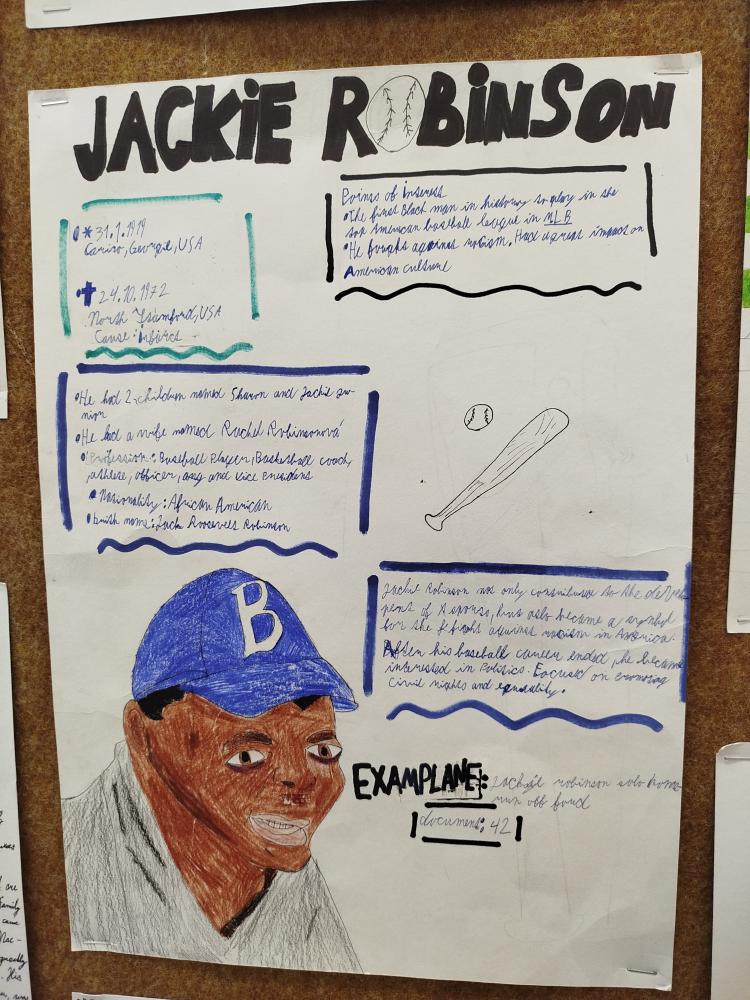 JACKiE ROBiNSON
* 31.1.1919
Cariro, Georgie, USA
✝ 24.10.1972
North Stamford, USA
Cause: infarct
Points of interest
•The first Black man in history to play in the
top American baseball league in MLB
•He fought against racism. Had a great impact on
American culture
•He had 2 children named Sharon and Jackie ju-
nior
•He had a wife named Rachel Robinsonová
•Profession: Baseball Player, Basketball coach,
athlete, officer, and vice President
•Nationality: African American
•birth name: Jack Roosevelt Robinson
Jackie Robinson not only contributed to the
of sports, but also became a symbol
for the fight against racism in America.
After his baseball career ended, he became
interested in Politics. Focused on
Civil rights and equality.
B
EXAMPLANE: robinson solo home
run
document: 42
are
family
came
Mac-
greatly
His